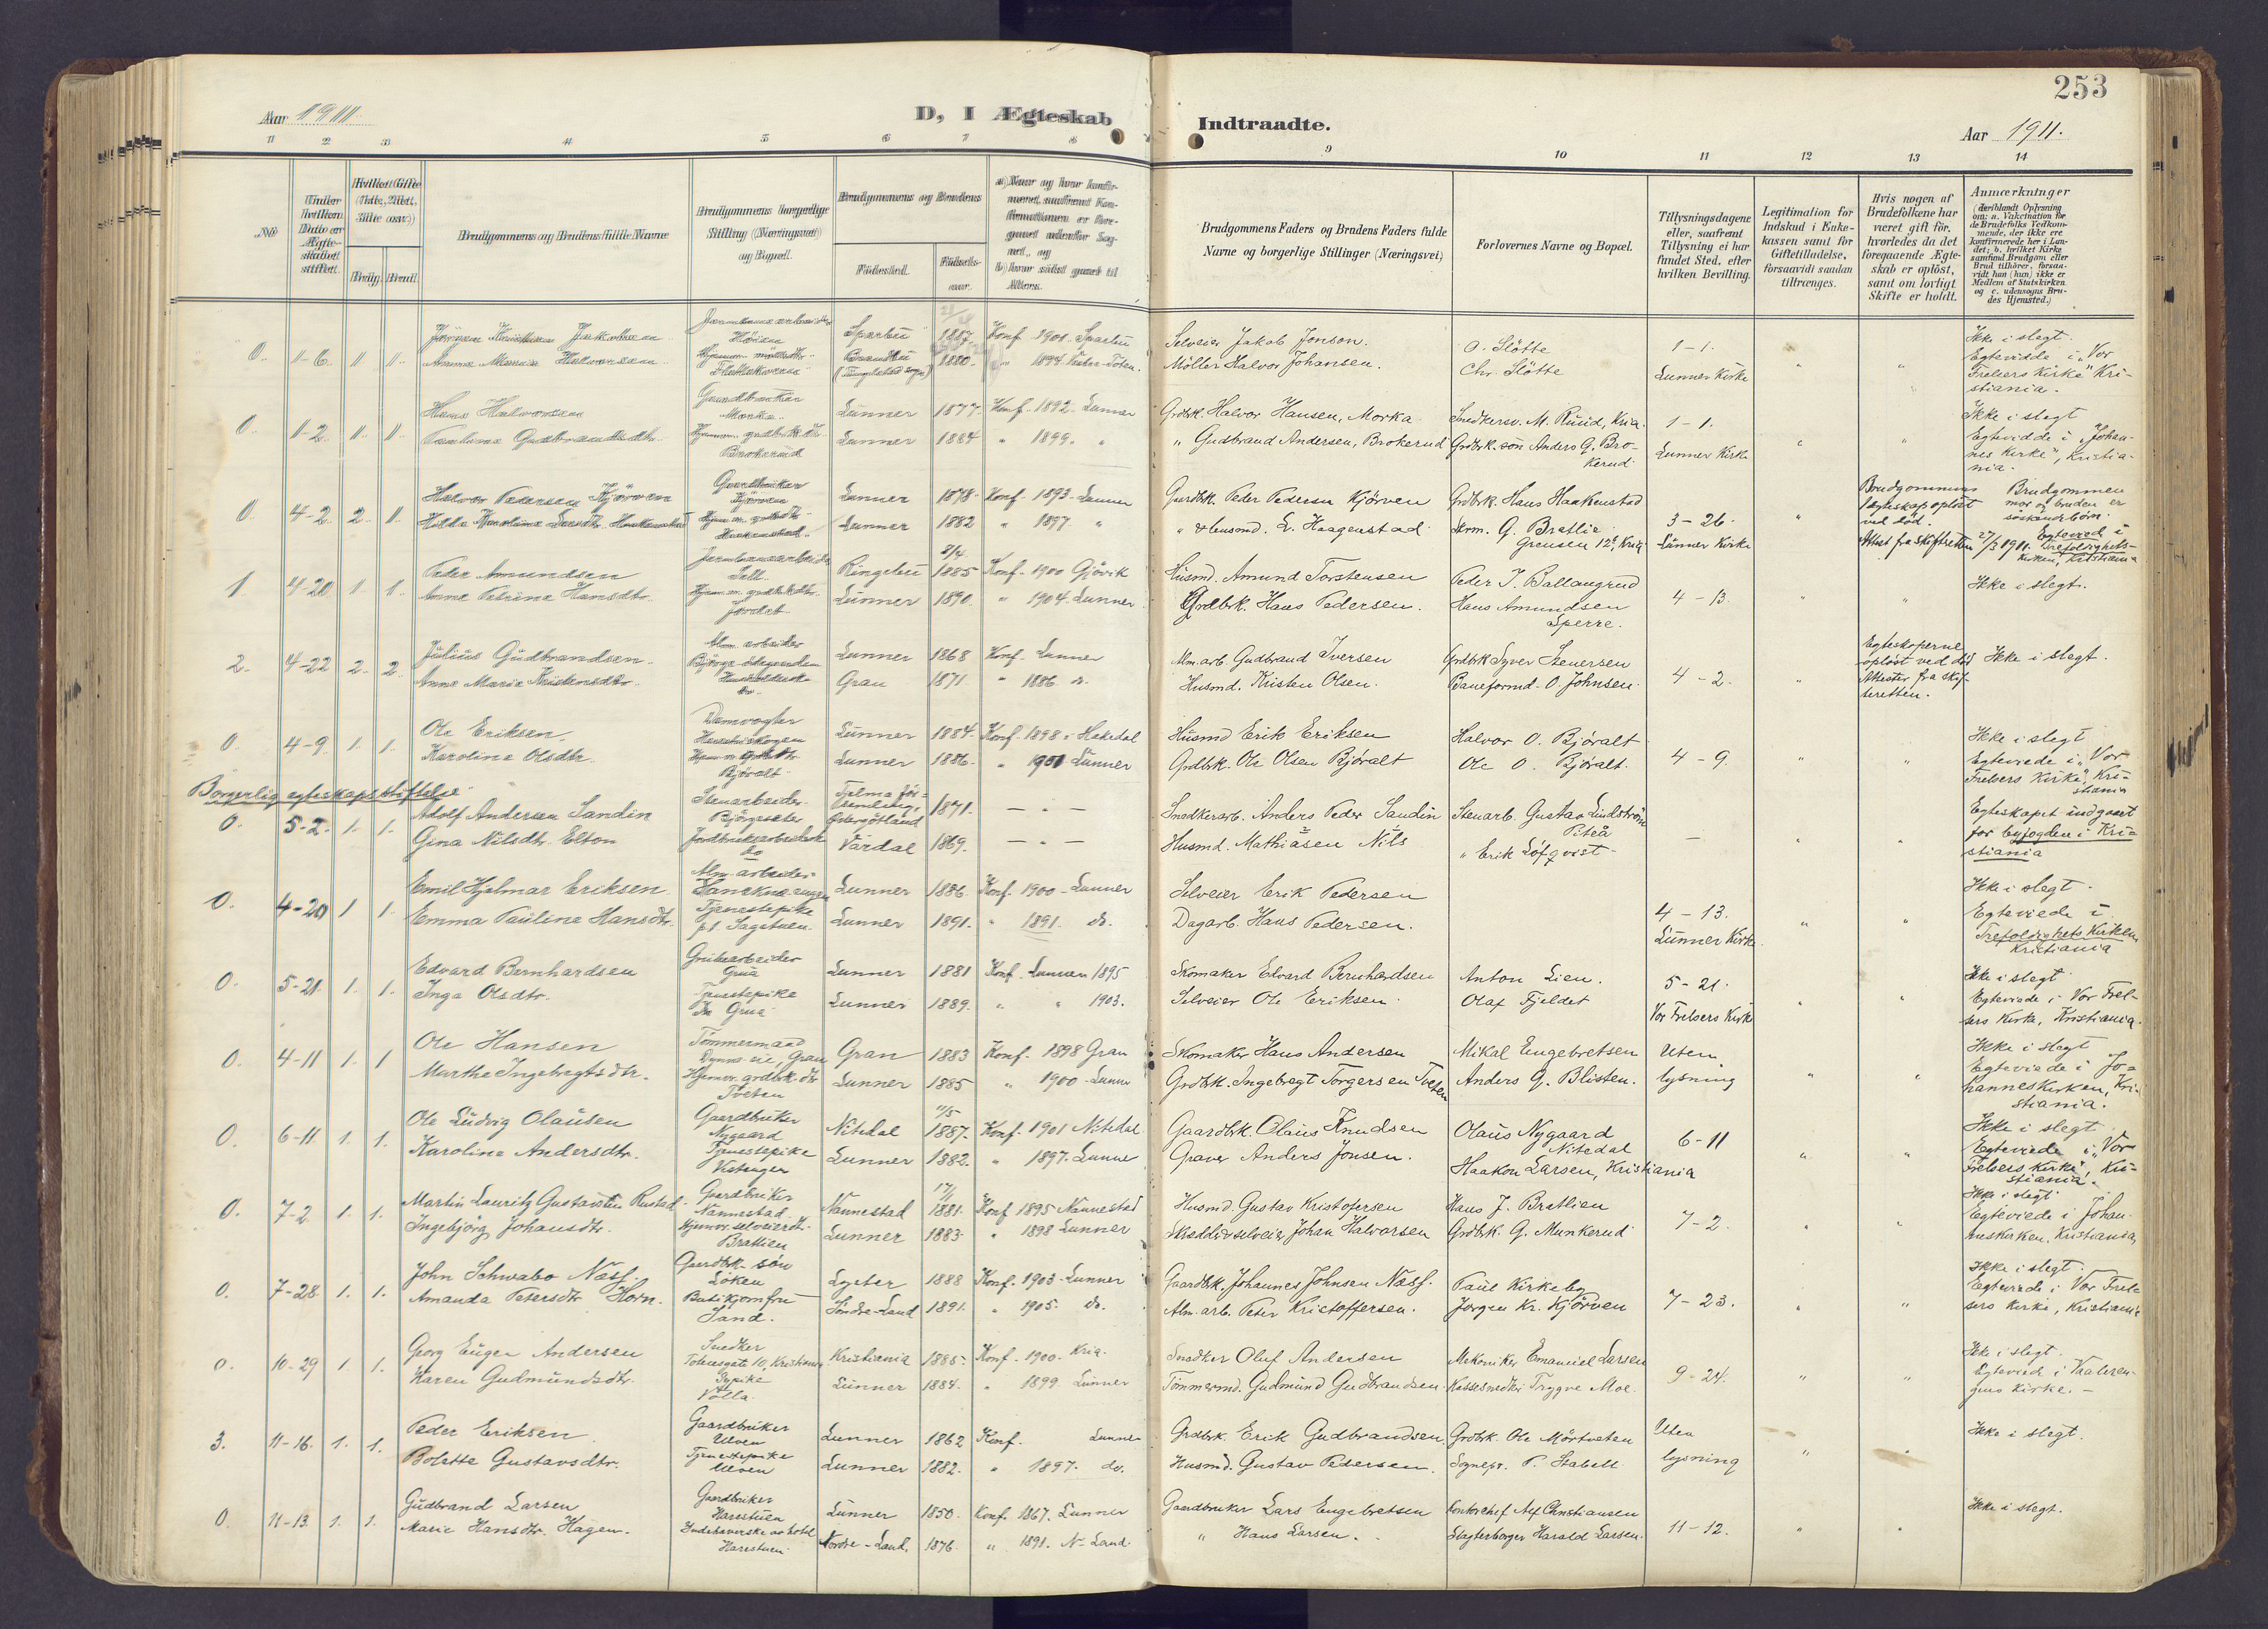 253
Aar 1911.
D, I Ægteskab
Indtraadte.
Aar 1911.
1 2 3 4 5 6 7 8
9 10 11 12 13 14
No
Under hvilken Dato er Ægteskabet stiftet.
Hvilket Gifte (1ste, 2det, 3die osv.)
Brudg. Brud.
Brudgommens og Brudens fulde Navne
Brudgommens borgerlige Stilling (Næringsvei) og Bopæl.
Brudgommens og Brudens
Fødested. Fødselsaar.
Brudgommens Faders og Brudens Faders fulde
Navne og borgerlige Stillinger (Næringsvei)
Forlovernes Navne og Bopæl.
Tillysningsdagene
eller, saafremt
Tillysning ei har
fundet Sted, efter
hvilken Bevilling.
Legitimation for
Indskud i Enke-
kassen samt for
Giftetilladelse,
forsaavidt saadan
tiltrænges.
Hvis nogen af
Brudefolkene har
været gift før,
hvorledes da det
foregaaende Ægte-
skab er opløst,
samt om lovligt
Skifte er holdt.
Anmærkninger
(deriblandt Oplysning
om: a. Vakcination for
de Brudefolks Vedkom-
mende, der ikke ere
konfirmerede her i Lan-
det; b. hvilket Kirke
samfund Brudgom eller
Brud tilhører, forsaa-
vidt han (hun) ikke er
Medlem af Statskirken
og c. udensogns Bru-
des Hjemsted.)
0. 1-6. 1. 1. Jørgen Kristian Jakobsen Sparbu 1887. Konf. 1901. Sparbu
Anna Maria Halvorsen Brandbu 1880. " 1894. Vestre-Toten.
Selveier Jakob Jonson. O. Sløtte 1-1. Ikke i slegt.
Møller Halvor Johansen. Chr. Sløtte Lunner Kirke Egtevidde i "Vor
Frelsers Kirke" Kri-
stiania.
0. 1-2. 1. 1. Hans Halvorsen Gaardbruker Morka Lunner 1877. Konf. 1892. Lunner
Paulina Gudbrandsdtr. Brokerud Lunner 1884 " 1899. "
Grdbrk. Halvor Hansen, Morka. Snedkersv. M. Ruud, Kria. 1-1. Ikke i slegt
" Gudbrand Andersen, Brokerud Grdbrk. søn Anders G. Bro-
kerud. Lunner Kirke Egtevidde i "Johan-
nes Kirke", Kristia-
nia.
0. 4-2. 2. 1. Halvor Pedersen Kjørven Gaardbruker Kjørven Lunner 1878. Konf. 1893. Lunner
Hilda Karolina Larsdtr. Haakenstad Lunner 1882 " 1897. "
Gardbk. Peder Pedersen Kjørven Grdbrk. Hans Haakenstad 3-26.
" & husmd. L. Haagenstad Skrm. G. Bratlie
Grensen 12b, Kria Lunner Kirke
Brudgommens
Egteskap opløst
ved død.
Attest fra Skifteretten 27/3 1911.
Brudgommen
mor og bruden er
søskendebørn.
Egteviet i
Trefoldighets-
kirken, Kristiania
1. 4-20 1. 1. Peder Amundsen Ringebu 1885 Konf. 1900 Gjøvik
Anne Petrine Hansdtr. Lunner 1890. " 1904. Lunner
Husmd. Amund Torstensen Peder J. Ballangrud 4-13. Ikke i slegt.
Grdbrk. Hans Pedersen. Hans Amundsen
Sperre.
2. 4-22 2. 2. Julius Gudbrandsen. Alm. arbeider Lunner 1868 Konf. Lunner
Anne Marie Kristensdtr. Gran 1871. " 1886. "
Alm. arb. Gudbrand Iversen Grdbrk Syver Stenersen 4-2.
Husmd. Kristen Olsen. Baneformd. O. Johnsen.
Egteskaperne
opløst ved død
Attester fra skif-
teretten.
Ikke i slegt.
0. 4-9. 1. 1. Ole Eriksen. Damvogter Lunner 1884. Konf. 1898 i Hakedal
Karoline Olsdtr. Bjøralt Lunner 1886. " 1901 Lunner
Husmd Erik Eriksen Halvor O. Bjøralt 4-9. Ikke i slegt
Grdbk. Ole Olsen Bjøralt Ole O. Bjøralt. Egteviede i "Vor
Frelsers Kirke" Kri-
stiania
Borgerlig egteskapsstiftelse.
0. 5-2. 1. 1. Adolf Andersen Sandin Stenarbeider Bjørgeseter Østergötland 1871. — . —
Gina Nilsdtr. Elton Vardal 1869. — . —
Snedkerarb. Anders Peder Sandin Stenarb. Gustav Lindström
Piteå —
Husmd. Mathiasen Nils " Erik Löfqvist
Egteskapet indgaaet
for byfogden i Kri-
stiania
0. 4-20 1 1. Emil Hjalmar Eriksen. Alm. arbeider Lunner 1886. Konf. 1900 - Lunner
Emma Pauline Hansdtr. Tjenestepike p.t. Sagstuen. Lunner 1891. " 1891. do.
Selveier Erik Pedersen 4-13. Ikke i slegt.
Dagarb. Hans Pedersen. Lunner Kirke Egteviede i
Trefoldighets Kirken,
Kristiania
0. 5-21. 1. 1. Edvard Bernhardsen Grubearbeider Grua Lunner 1881 Konf. Lunner 1895
Inga Olsdtr. Tjenestepike Grua Lunner 1889. " " 1903.
Skomaker Edvard Bernhardsen Anton Lien. 5-21. Ikke i slegt
Selveier Ole Eriksen. Olaf Fjeldet Vor Frelsers Kirke Egteviede i Vor Frel-
sers Kirke, Kristiania.
0. 4-11 1. 1 Ole Hansen Tømmermand Dynna-eie, Gran Gran 1883 Konf. 1898 Gran
Marthe Ingebregtsdtr. Hjemmev. grdbrk. dtr Tveten Lunner 1885 " 1900 - Lunner
Skomaker Hans Andersen Mikal Engebretsen Uten Ikke i slegt
Grdbk. Ingebregt Torgersen Tveten Anders G. Blisten. lysning Egteviede i Jo-
hanneskirken, Kri-
stiania.
0. 6-11 1. 1. Ole Ludvig Olausen Gaardbruker Nygaard Nitedal 1887. Konf. 1901 Nitedal
Karoline Andersdtr. Tjenestepike Lunner 1882. " 1897. Lunner
Gaardbk. Olaus Knudsen Olaus Nygaard
Nitedal 6-11 Ikke i slegt
Graver Anders Jonsen. Haakon Larsen, Kristiania Egteviede i "Vor
Frelsers Kirke", Kri-
stiania.
0. 7-2 1. 1. Martin Lauritz Gustavsen Rustad. Gaardbruker Nannestad. Nannestad 17/11 1881. Konf. 1895 Nannestad
Ingebjørg Johansdtr. Hjemmev. selveierdtr. Bratlien Lunner 1883. " 1898 Lunner
Husmd. Gustav Kristofersen Hans J. Bratlien 7-2. Ikke i slegt
Skrædder & selveier Johan Halvorsen Grdbrk. G. Munkerud Egteviede i Johan-
neskirken, Kristiania,
0. 7-28 1. 1. John Schwabo Næss. Gaardbk. søn Løken Lyster 1888 Konf. 1903. Lunner
Amanda Petersdtr. Horn. Butikjomfru Sand. Søndre-Land 1891. " 1905. do.
Gaardbk. Johannes Johnsen Næss. Paul Kirkeby 7-23. Ikke i slegt.
Alm. arb. Peter Kristoffersen. Jørgen Kr. Kjørven Egteviede i Vor Frel-
sers Kirke, Kristiania
0. 10-29 1. 1. Georg Eugen Andersen Snedker Kristiania 1885. Konf. 1900. Kria.
Karen Gudmundsdtr. Sypike Volla Lunner 1884. " 1899. Lunner
Snedker Oluf Andersen Mekaniker Emanuel Larsen 9-24. Ikke i slegt.
Tømmermd. Gudmund Gudbrandsen Kassesnedker Trygve Moe. Egteviede i Vaaleren-
gens Kirke. —
3. 11-16. 1. 1. Peder Eriksen Gaardbruker Ulven Lunner 1862 Konf. Lunner
Bolette Gustavsdtr. Tjenestepike Ulven Lunner 1882. " 1897. do.
Grdbrk. Erik Gudbrandsen. Grdbrk. Ole Mørtveten Uten Ikke i slegt.
Husmd. Gustav Pedersen. Sognepr. P. Stabell lysning
0. 11-13. 1. 1. Gudbrand Larsen Gaardbruker Harestuen Lunner 1850. Konf. 1867. Lunner
Marie Hansdtr. Hagen. Indehaverske av hotel Harestuen. Nordre-Land, 1876. " 1891. N-Land.
Gaardbruker Lars Engebretsen Kontorchef Alf Christiansen 11-12. Ikke i slegt.
" Hans Larsen. Slagterborger Harald Larsen.